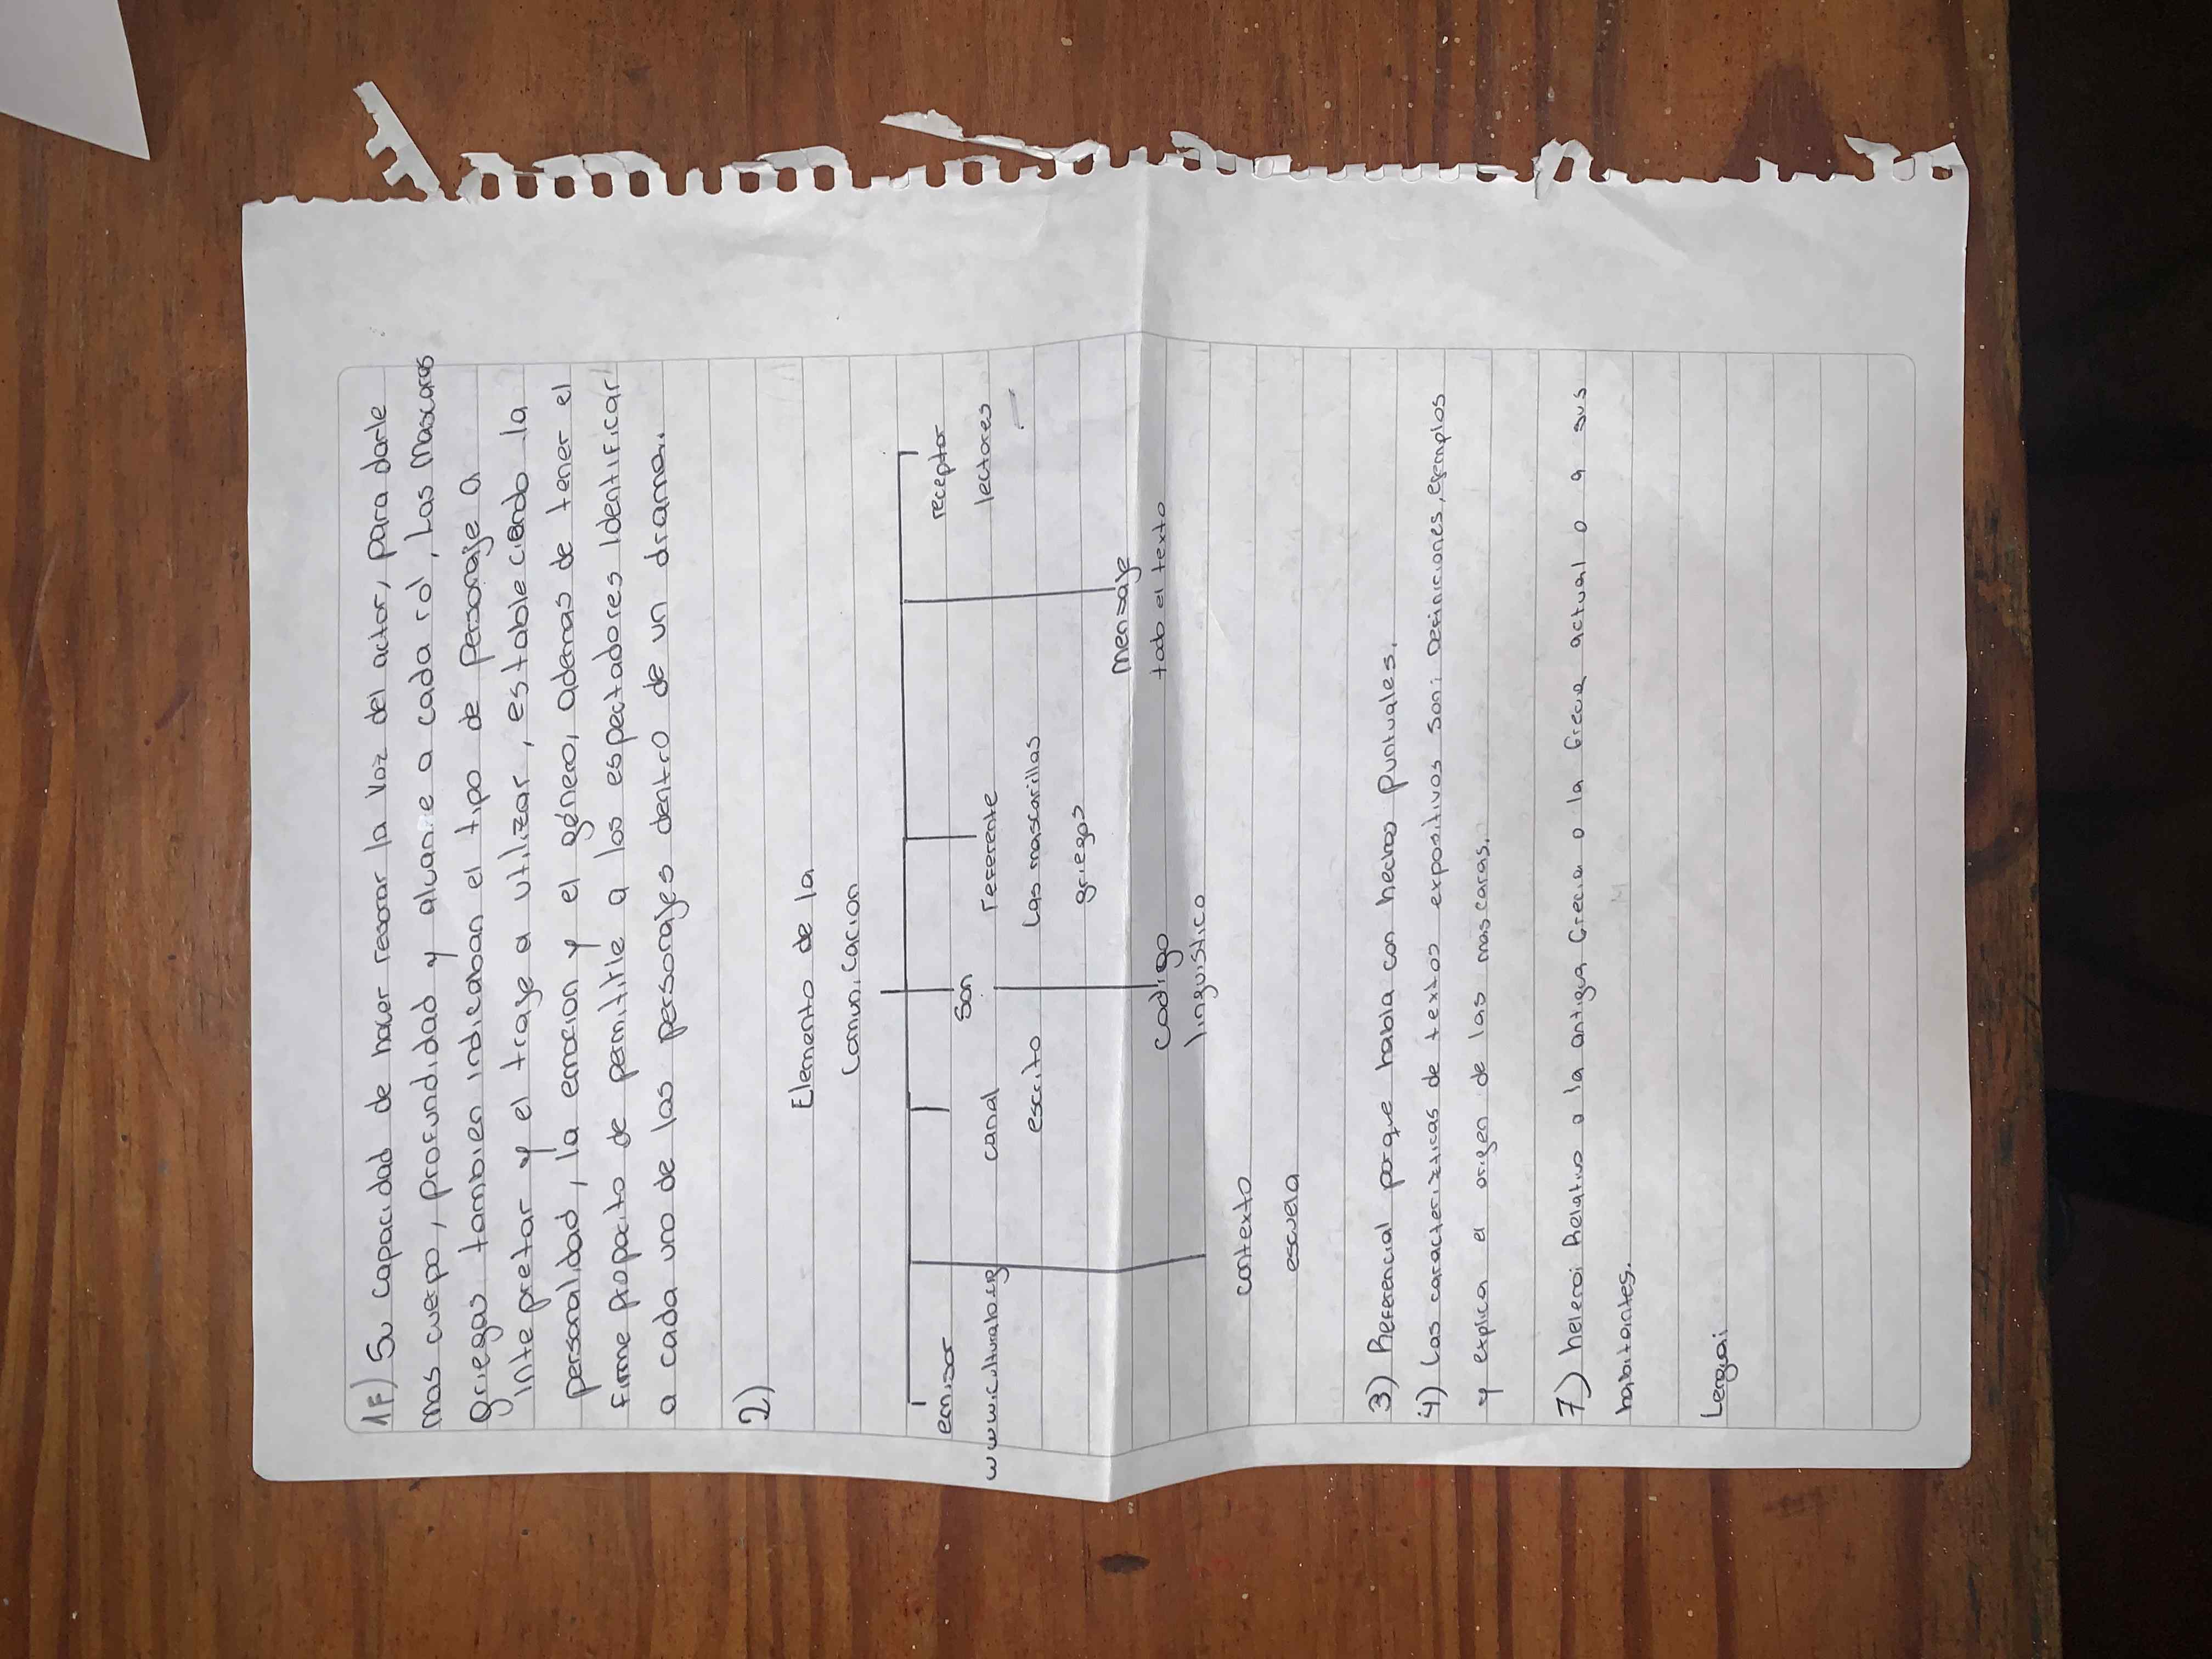 1F) Su capacidad de hacer resonar la voz del actor, para darle
mas cuerpo, profundidad y alcance a cada rol, Las Mascaras
griegas tambien indicaban el tipo de personaje a
intepretar y el traje a utilizar, estableciendo la
personalidad, la emocion y el género, ademas de tener el
firme propocito de permitirle a los espectadores identificar
a cada uno de los personajes dentro de un drama.
2)
Elemento de la
Comunicacion
Son
emisor
www.culturalo.es
canal
escrito
referente
Las mascarillas
griegas
receptor
lectores
Mensaje
todo el texto
Codigo
linguistico
contexto
escuela
3) Referencial porque habla con hechos puntuales.
4) Las caracterizticas de textos expositivos son: Definiciones, ejemplos
y explica el origen de las mascaras.
7) heleno: Relativo a la antigua Grecia o la Grecia actual o a sus
habitantes.
Lengai